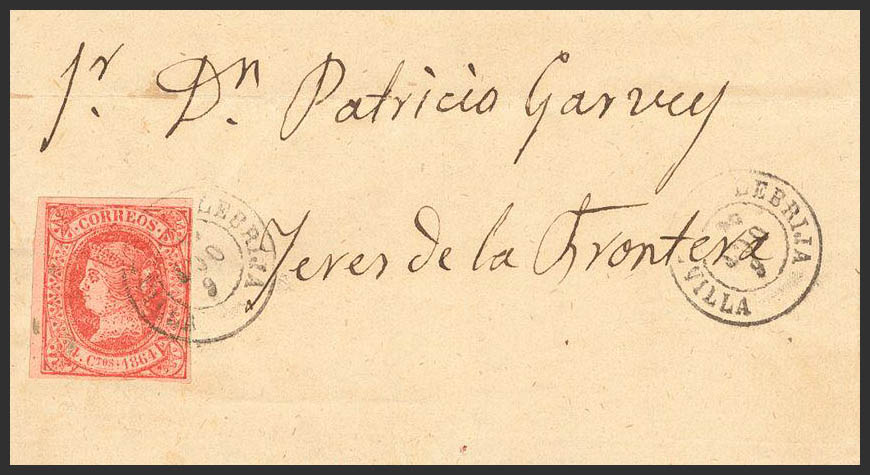 Sr. Dn. Patricio Garvey
Jeres de la Frontera
CORREOS
4 Ctos. 1864
LEBRIJA
LEBRIJA
VILLA